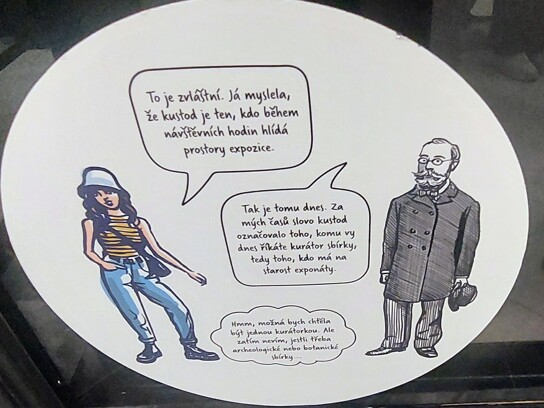 To je zvláštní. Já myslela,
že kustod je ten, kdo během
návštěvních hodin hlídá
prostory expozice.
Tak je tomu dnes. Za
mých časů slovo kustod
označovalo toho, komu vy
dnes říkáte kurátor sbírky,
tedy toho, kdo má na
starost exponáty.
Hmm, možná bych chtěla
být jednou kurátorkou. Ale
zatím nevím, jestli třeba
archeologické nebo botanické
sbírky...